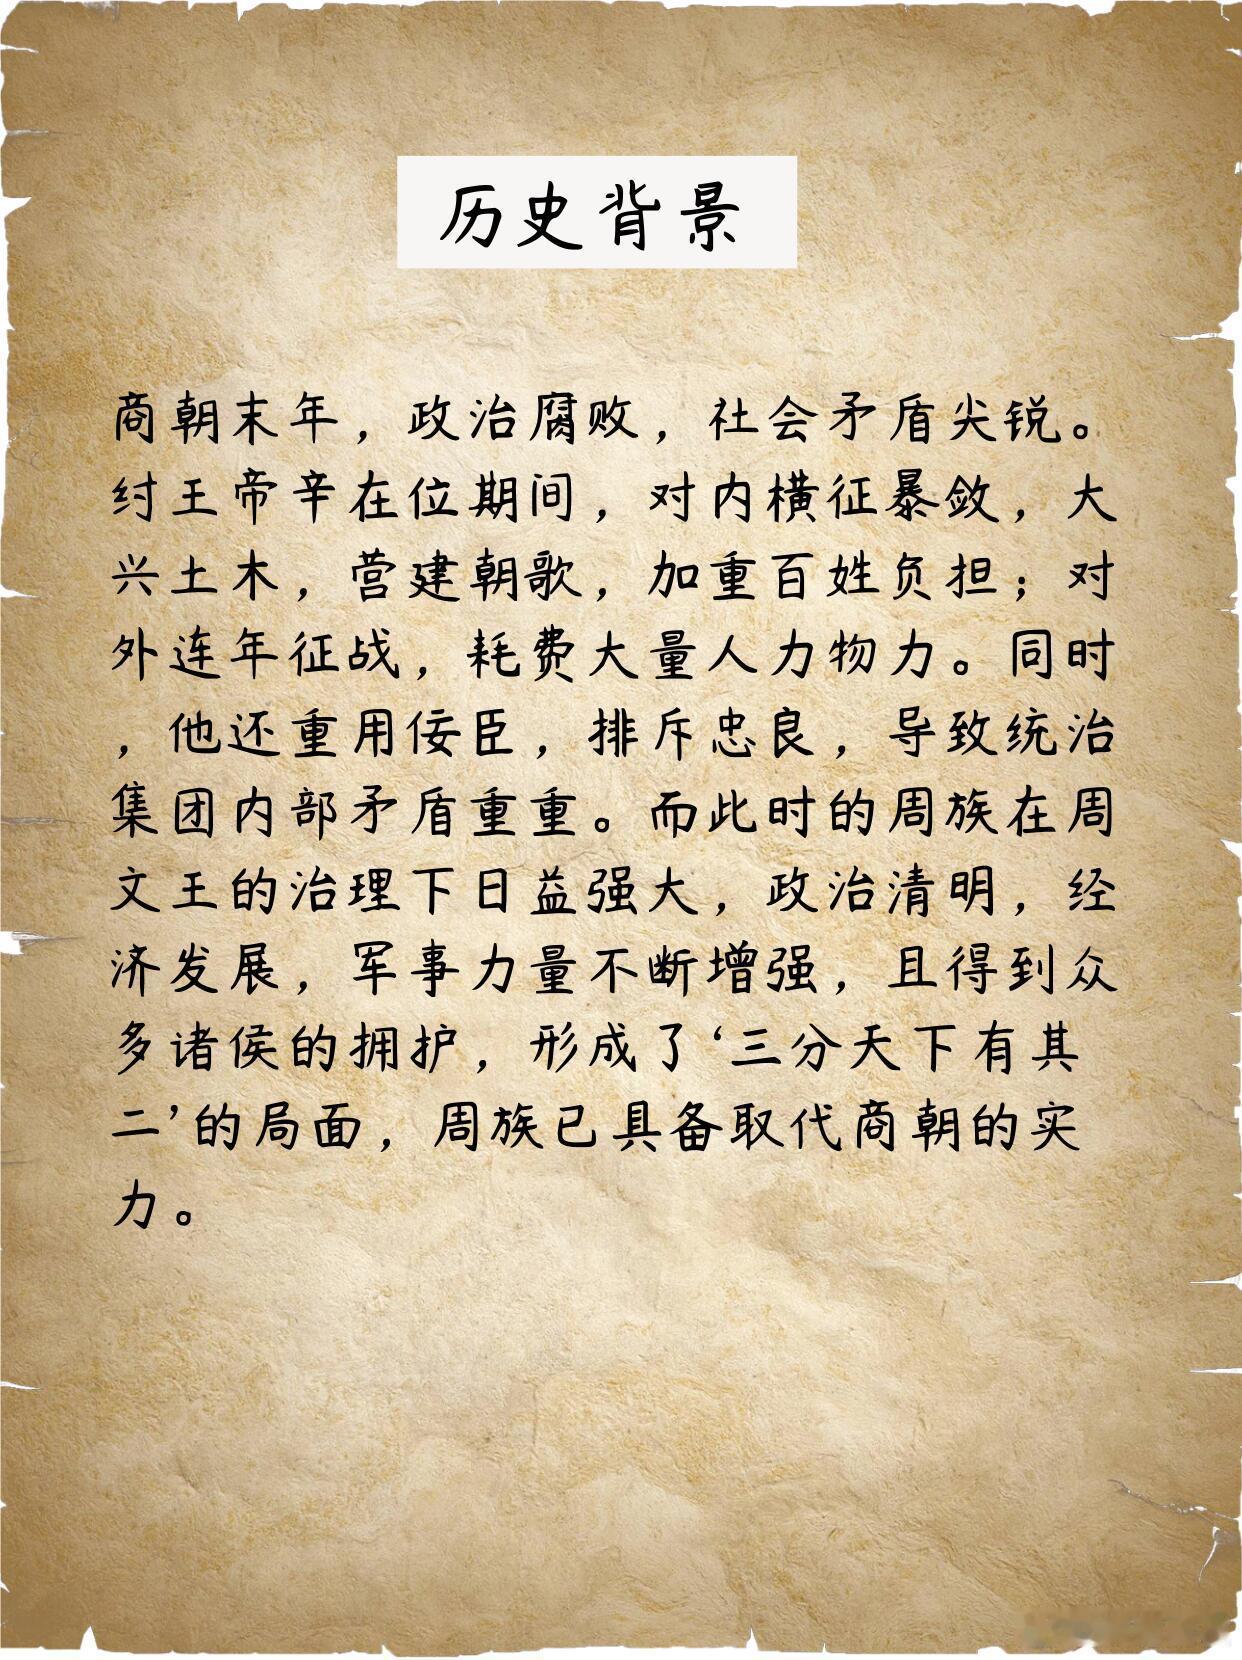 历史背景
商朝末年，政治腐败，社会矛盾尖锐。
纣王帝辛在位期间，对内横征暴敛，大
兴土木，营建朝歌，加重百姓负担；对
外连年征战，耗费大量人力物力。同时
，他还重用佞臣，排斥忠良，导致统治
集团内部矛盾重重。而此时的周族在周
文王的治理下日益强大，政治清明，经
济发展，军事力量不断增强，且得到众
多诸侯的拥护，形成了‘三分天下有其
二’的局面，周族已具备取代商朝的实
力。